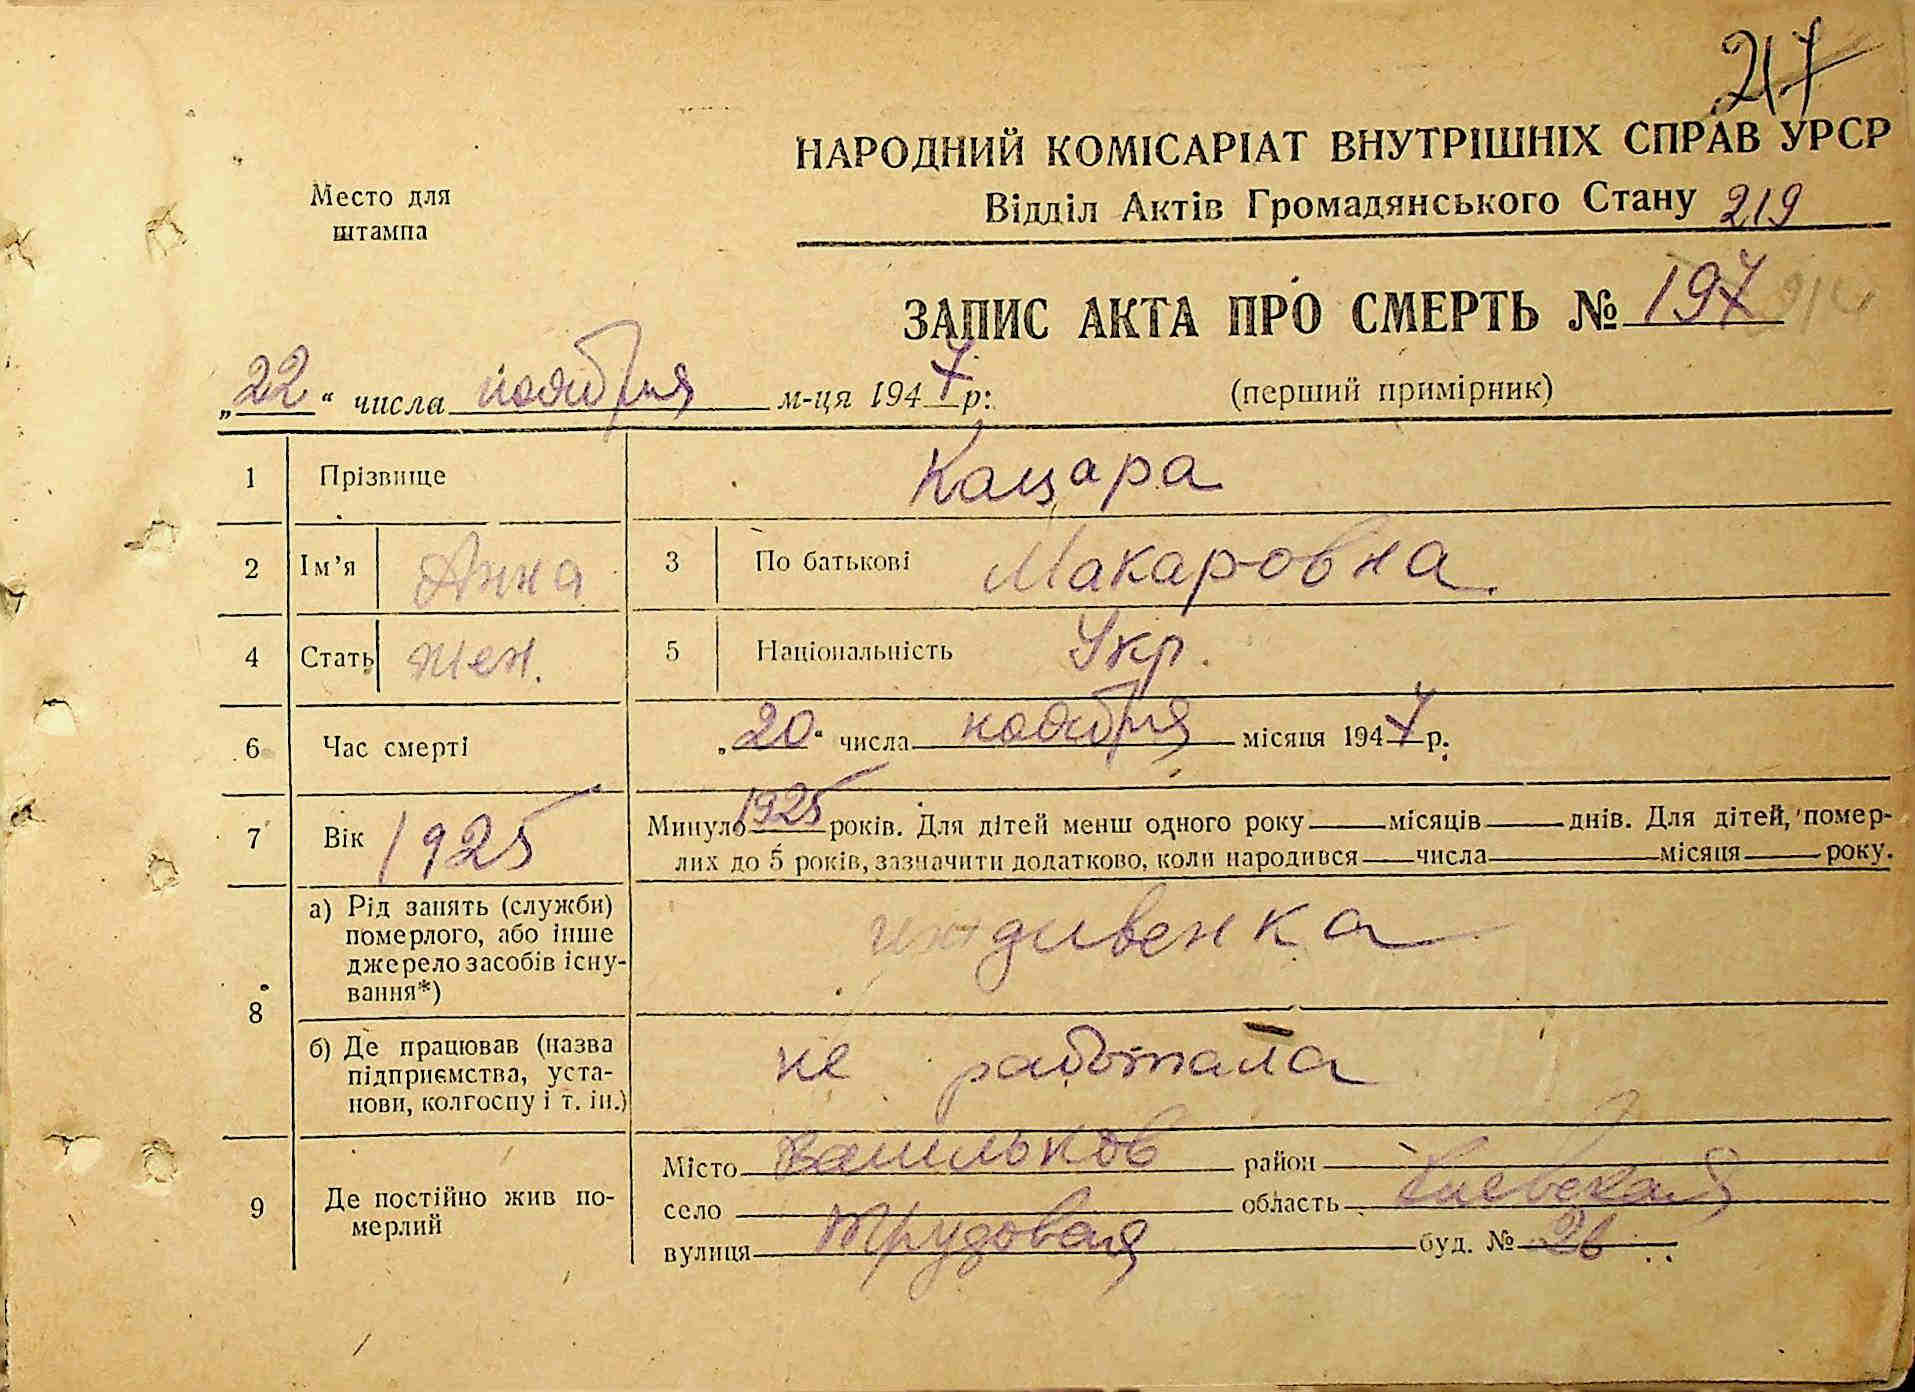 217
НАРОДНИЙ КОМІСАРІАТ ВНУТРІШНІХ СПРАВ УРСР
Место для
штампа
Відділ Актів Громадянського Стану 219
ЗАПИС АКТА ПРО СМЕРТЬ № 197
„22“ числа ноября м-ця 1947 р:
(перший примірник)
1 Прізвище Кацара
2 Ім’я Анна 3 По батькові Макаровна
4 Стать жен. 5 Національність Укр.
6 Час смерті „20“ числа ноября місяця 1947 р.
7 Вік 1925 Минуло 1925 років. Для дітей менш одного року місяців днів. Для дітей, помер-
лих до 5 років, зазначити додатково, коли народився числа місяця року.
8 а) Рід занять (служби)
померлого, або інше
джерело засобів існу-
вання*)
иждивенка
б) Де працював (назва
підприємства, уста-
нови, колгоспу і т. ін.)
не работала
9 Де постійно жив по-
мерлий
Місто Васильков район
село область Киевская
вулиця Трудовая буд. № 26